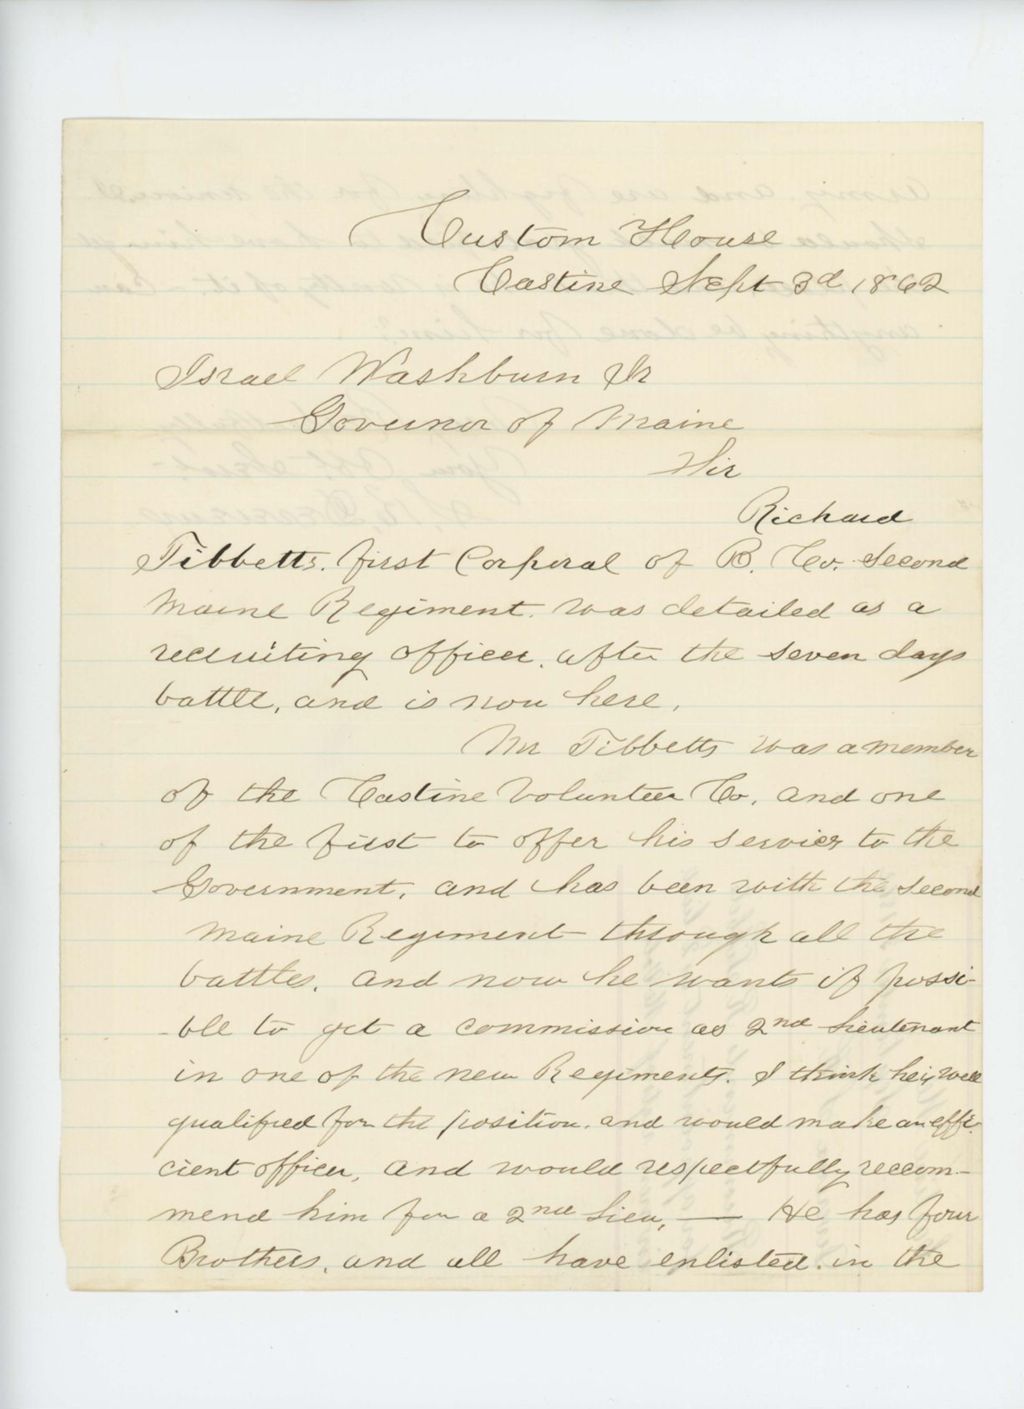 Custom House
Castine Sept 3d 1862
Israel Washburn Jr
Governor of Maine
Sir
Richard
Tibbetts. first Corporal of B. Co. Second
Maine Regiment. was detailed as a
recruiting officer. after the seven days
battle, and is now here.
Mr Tibbetts was a member
of the Castine Volunteer Co. and one
of the first to offer his servies to the
Government, and has been with the second
Maine Regiment through all the
battles. and now he wants if possi-
-ble to get a commission as 2nd Lieutenant
in one of the new Regiments. I think he is well
qualified for the position. and would make an effi-
cient officer, and would respectfully recom-
mend him for a 2nd Lieu, — He has four
Brothers, and all have enlisted. in the